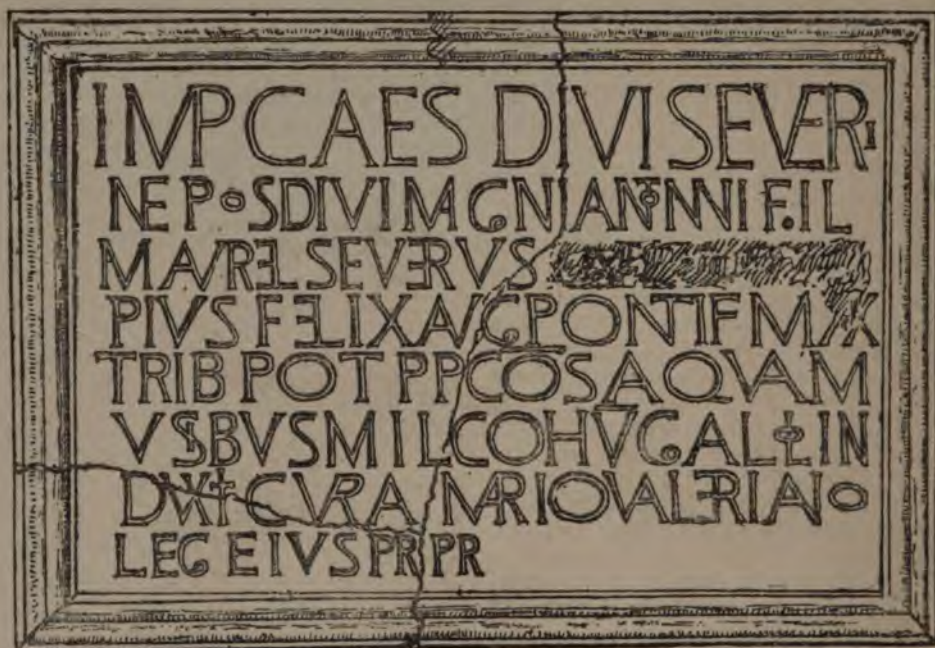 IMP CAES DIVI SEVERI
NEPOS DIVI MAGNI ANTONINI FIL
M AVREL SEVERVS
PIVS FELIX AVG PONTIF MAX
TRIB POT P P COS AQVAM
VSIBVS MIL COH V GALL IN
DVXIT CVRA MARIO VALERIANO
LEG EIVS PR PR